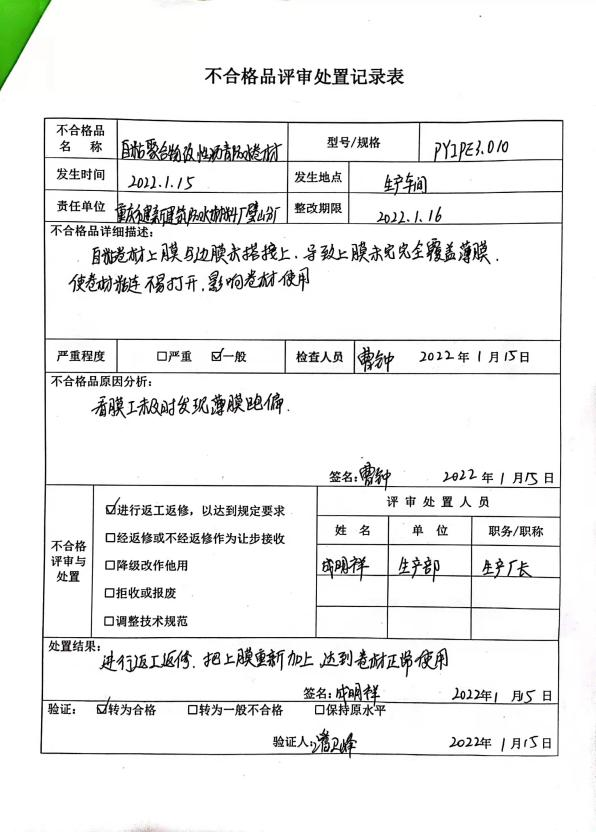 不合格品评审处置记录表
不合格品名 称 自粘聚合物改性沥青防水卷材 型号/规格 PYIPE3.0 10
发生时间 2022.1.15 发生地点 生产车间
责任单位 重庆市建新建筑防水材料厂璧山分厂 整改期限 2022.1.16
不合格品详细描述:
自粘卷材上膜与边膜未搭接上,导致上膜未完完全覆盖薄膜.
使卷材粘连不易打开,影响卷材使用
严重程度 □严重 ☑一般 检查人员 曹钟 2022年1月15日
不合格品原因分析:
看膜工未及时发现薄膜跑偏.
签名:曹钟 2022年1月15日
不合格评审与处置
☑进行返工返修,以达到规定要求
□经返修或不经返修作为让步接收
□降级改作他用
□拒收或报废
□调整技术规范
评审处置人员
姓 名 单 位 职务/职称
成明祥 生产部 生产厂长
处置结果:
进行返工返修.把上膜重新加上,达到卷材正常使用
签名:成明祥 2022年1月15日
验证: ☑转为合格 □转为一般不合格 □保持原水平
验证人: 2022年1月15日